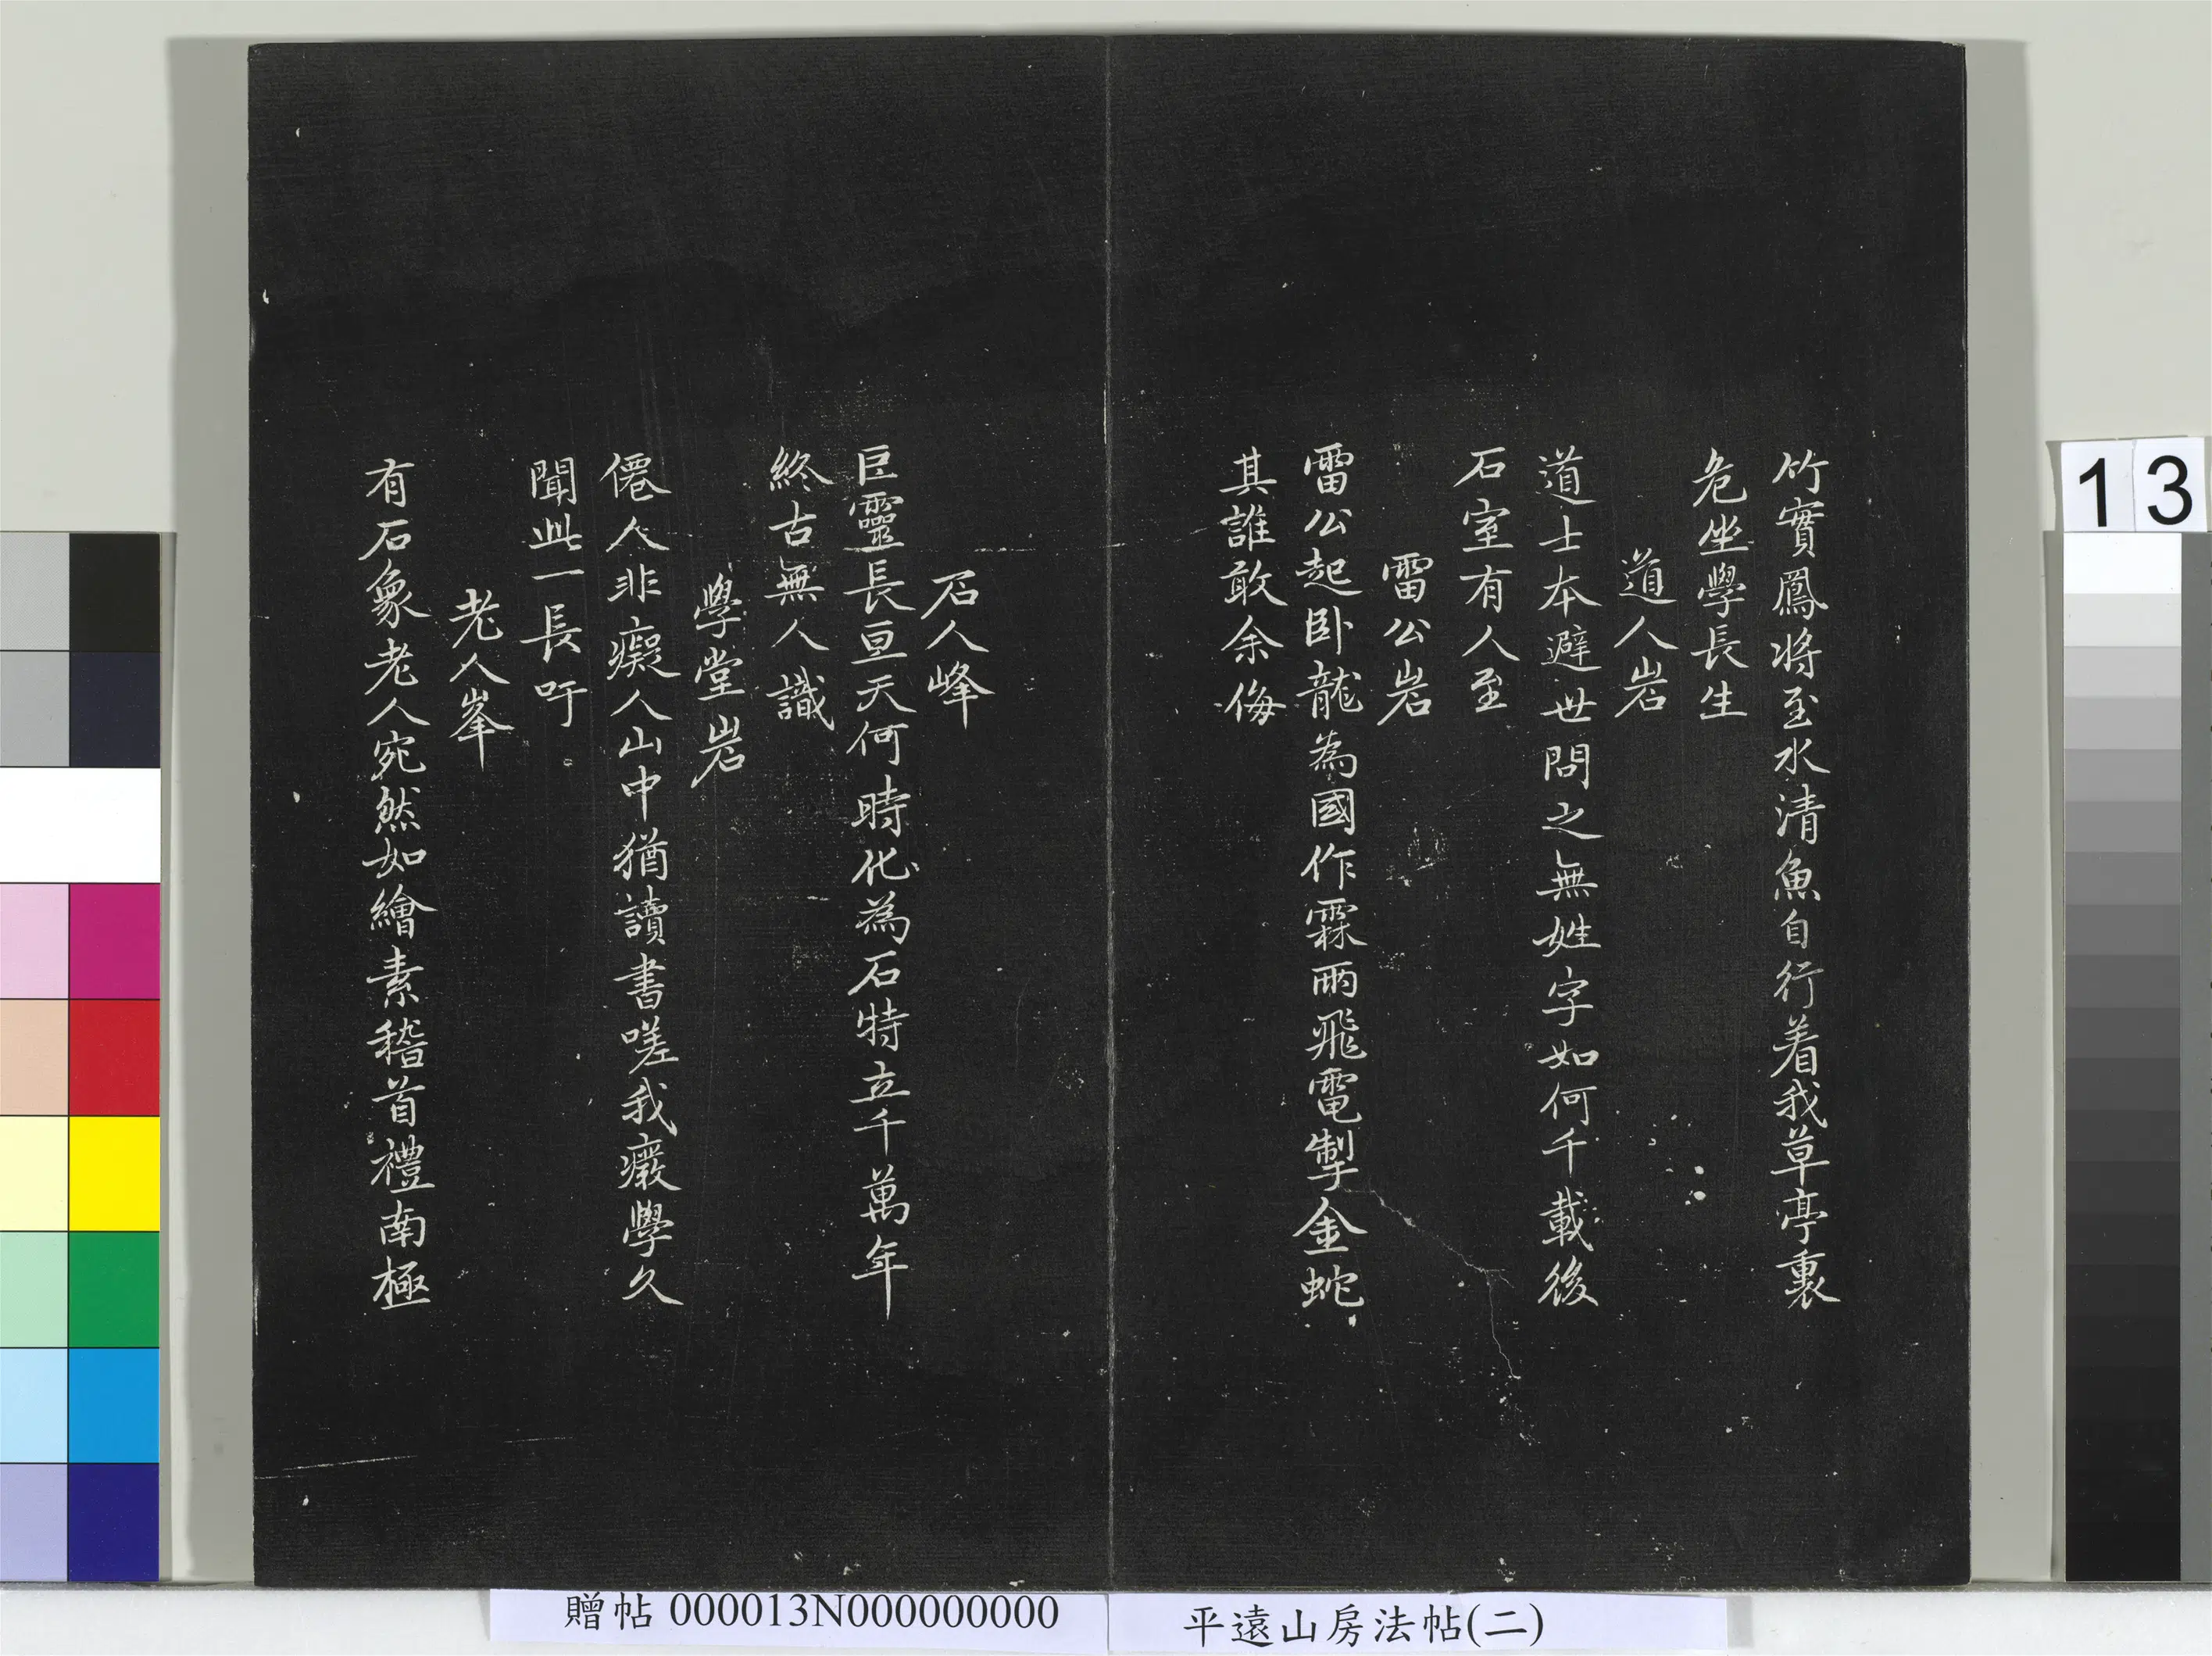 竹實鳳將至水清魚自行着我草亭裏
危坐學長生
道人岩
道士本避世問之無姓字如何千載後
石室有人至
雷公岩
雷公起卧龍為國作霖雨飛電掣金蛇
其誰敢余侮
石人峰
巨靈長亘天何時化為石特立千萬年
終古無人識
學堂岩
僊人非癡人山中猶讀書嗟我癈學久
聞此一長吁
老人峯
有石象老人宛然如繪素稽首禮南極
13
贈帖 000013N000000000
平遠山房法帖(二)